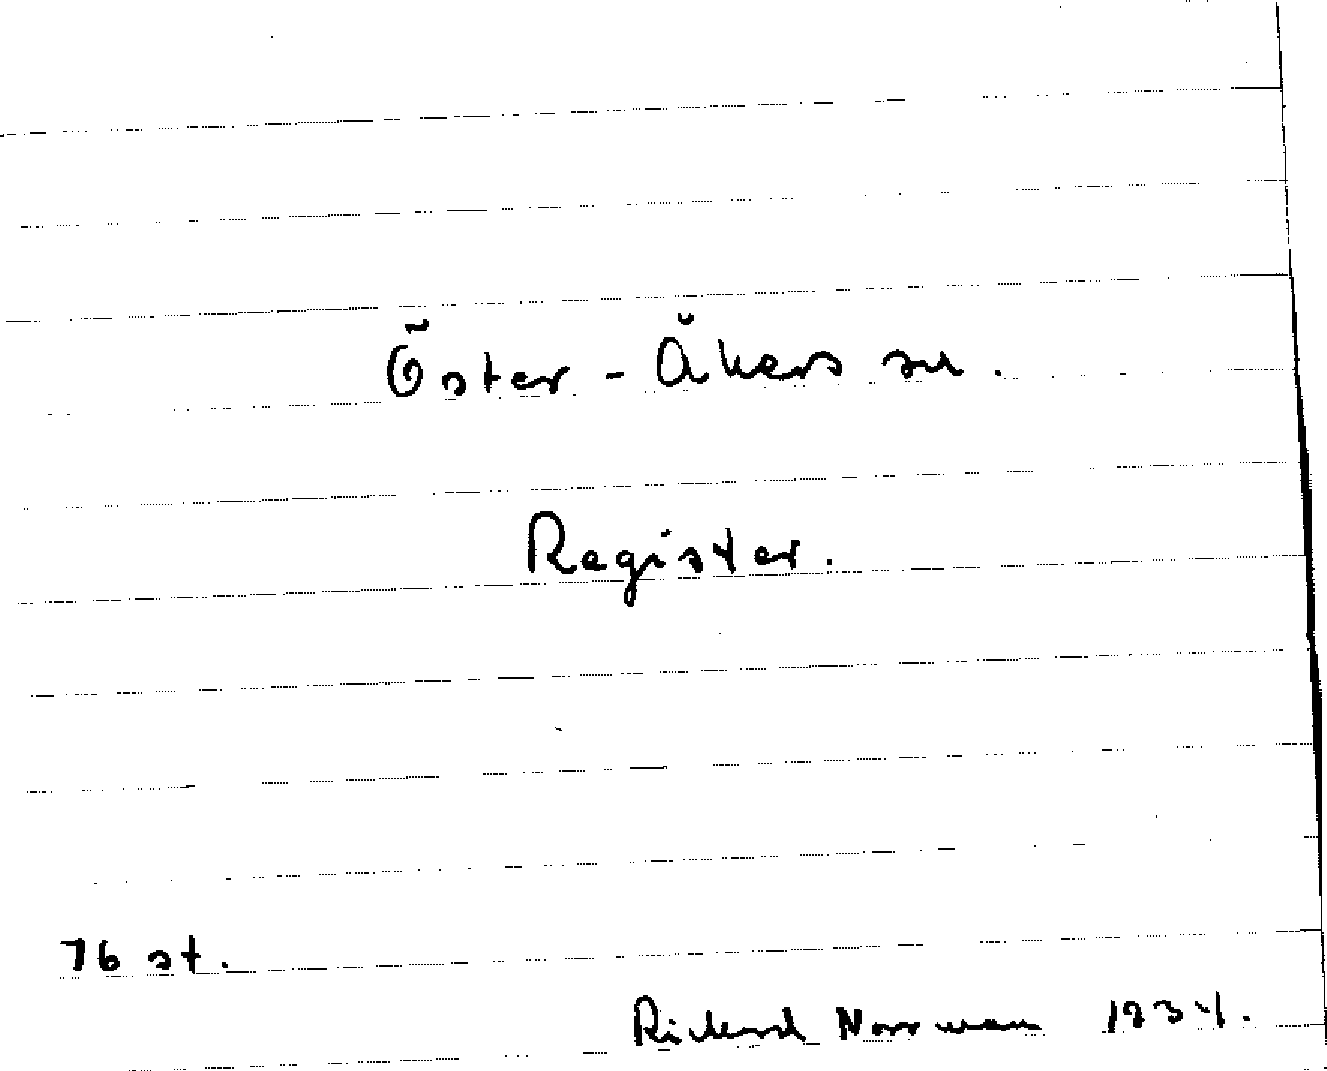 Öster-Åkers sn.
Register.
76 st.
Rickard Norrman 1934.